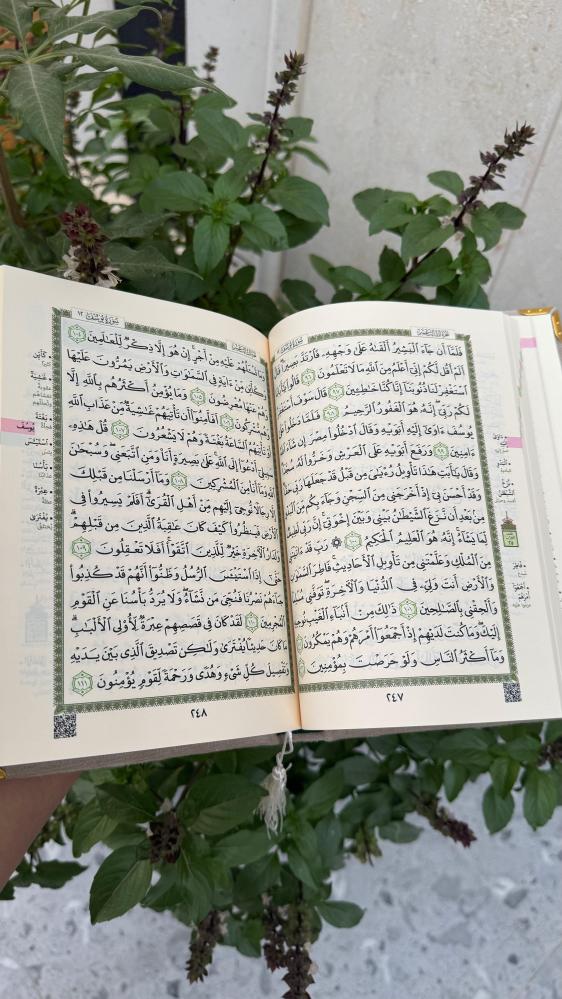 سُورَةُ يُوسُفَ
فَلَمَّآ أَن جَآءَ ٱلْبَشِيرُ أَلْقَىٰهُ عَلَىٰ وَجْهِهِۦ فَٱرْتَدَّ
أَلَمْ أَقُل لَّكُمْ إِنِّىٓ أَعْلَمُ مِنَ ٱللَّهِ مَا لَا تَعْلَمُونَ ٩٦ قَالُوا۟
ٱسْتَغْفِرْ لَنَا ذُنُوبَنَآ إِنَّا كُنَّا خَٰطِـِٔينَ ٩٧ قَالَ سَوْفَ
لَكُمْ رَبِّىٓ إِنَّهُۥ هُوَ ٱلْغَفُورُ ٱلرَّحِيمُ ٩٨ فَلَمَّا دَخَلُوا۟
يُوسُفَ ءَاوَىٰٓ إِلَيْهِ أَبَوَيْهِ وَقَالَ ٱدْخُلُوا۟ مِصْرَ إِن شَآءَ
ءَامِنِينَ ٩٩ وَرَفَعَ أَبَوَيْهِ عَلَى ٱلْعَرْشِ وَخَرُّوا۟ لَهُۥ
وَقَالَ يَٰٓأَبَتِ هَٰذَا تَأْوِيلُ رُءْيَٰىَ مِن قَبْلُ قَدْ جَعَلَهَا رَبِّى
وَقَدْ أَحْسَنَ بِىٓ إِذْ أَخْرَجَنِى مِنَ ٱلسِّجْنِ وَجَآءَ بِكُم مِّنَ
مِنۢ بَعْدِ أَن نَّزَغَ ٱلشَّيْطَٰنُ بَيْنِى وَبَيْنَ إِخْوَتِىٓ إِنَّ رَبِّى
لِّمَا يَشَآءُ إِنَّهُۥ هُوَ ٱلْعَلِيمُ ٱلْحَكِيمُ ١٠٠ ۞ رَبِّ قَدْ
مِنَ ٱلْمُلْكِ وَعَلَّمْتَنِى مِن تَأْوِيلِ ٱلْأَحَادِيثِ فَاطِرَ
وَٱلْأَرْضِ أَنتَ وَلِىِّۦ فِى ٱلدُّنْيَا وَٱلْءَاخِرَةِ تَوَفَّنِى
وَأَلْحِقْنِى بِٱلصَّٰلِحِينَ ١٠١ ذَٰلِكَ مِنْ أَنۢبَآءِ ٱلْغَيْبِ
إِلَيْكَ وَمَا كُنتَ لَدَيْهِمْ إِذْ أَجْمَعُوٓا۟ أَمْرَهُمْ وَهُمْ يَمْكُرُونَ
وَمَآ أَكْثَرُ ٱلنَّاسِ وَلَوْ حَرَصْتَ بِمُؤْمِنِينَ
٢٤٧
سُورَةُ يُوسُفَ ١٢
عَلَيْهِ مِنْ أَجْرٍ إِنْ هُوَ إِلَّا ذِكْرٌ لِّلْعَٰلَمِينَ ١٠٤
مِّنْ ءَايَةٍ فِى ٱلسَّمَٰوَٰتِ وَٱلْأَرْضِ يَمُرُّونَ عَلَيْهَا
وَهُمْ عَنْهَا مُعْرِضُونَ ١٠٥ وَمَا يُؤْمِنُ أَكْثَرُهُم بِٱللَّهِ إِلَّا
مُّشْرِكُونَ ١٠٦ أَفَأَمِنُوٓا۟ أَن تَأْتِيَهُمْ غَٰشِيَةٌ مِّنْ عَذَابِ ٱللَّهِ
أَوْ تَأْتِيَهُمُ ٱلسَّاعَةُ بَغْتَةً وَهُمْ لَا يَشْعُرُونَ ١٠٧ قُلْ هَٰذِهِۦ
أَدْعُوٓا۟ إِلَى ٱللَّهِ عَلَىٰ بَصِيرَةٍ أَنَا۠ وَمَنِ ٱتَّبَعَنِى وَسُبْحَٰنَ
ٱللَّهِ وَمَآ أَنَا۠ مِنَ ٱلْمُشْرِكِينَ ١٠٨ وَمَآ أَرْسَلْنَا مِن قَبْلِكَ
إِلَّا رِجَالًا نُّوحِىٓ إِلَيْهِم مِّنْ أَهْلِ ٱلْقُرَىٰٓ أَفَلَمْ يَسِيرُوا۟ فِى
ٱلْأَرْضِ فَيَنظُرُوا۟ كَيْفَ كَانَ عَٰقِبَةُ ٱلَّذِينَ مِن قَبْلِهِمْ
وَلَدَارُ ٱلْءَاخِرَةِ خَيْرٌ لِّلَّذِينَ ٱتَّقَوْا۟ أَفَلَا تَعْقِلُونَ ١٠٩
حَتَّىٰٓ إِذَا ٱسْتَيْـَٔسَ ٱلرُّسُلُ وَظَنُّوٓا۟ أَنَّهُمْ قَدْ كُذِبُوا۟
جَآءَهُمْ نَصْرُنَا فَنُجِّىَ مَن نَّشَآءُ وَلَا يُرَدُّ بَأْسُنَا عَنِ ٱلْقَوْمِ
ٱلْمُجْرِمِينَ ١١٠ لَقَدْ كَانَ فِى قَصَصِهِمْ عِبْرَةٌ لِّأُو۟لِى ٱلْأَلْبَٰبِ
مَا كَانَ حَدِيثًا يُفْتَرَىٰ وَلَٰكِن تَصْدِيقَ ٱلَّذِى بَيْنَ يَدَيْهِ
وَتَفْصِيلَ كُلِّ شَىْءٍ وَهُدًى وَرَحْمَةً لِّقَوْمٍ يُؤْمِنُونَ ١١١
٢٤٨
يوسف